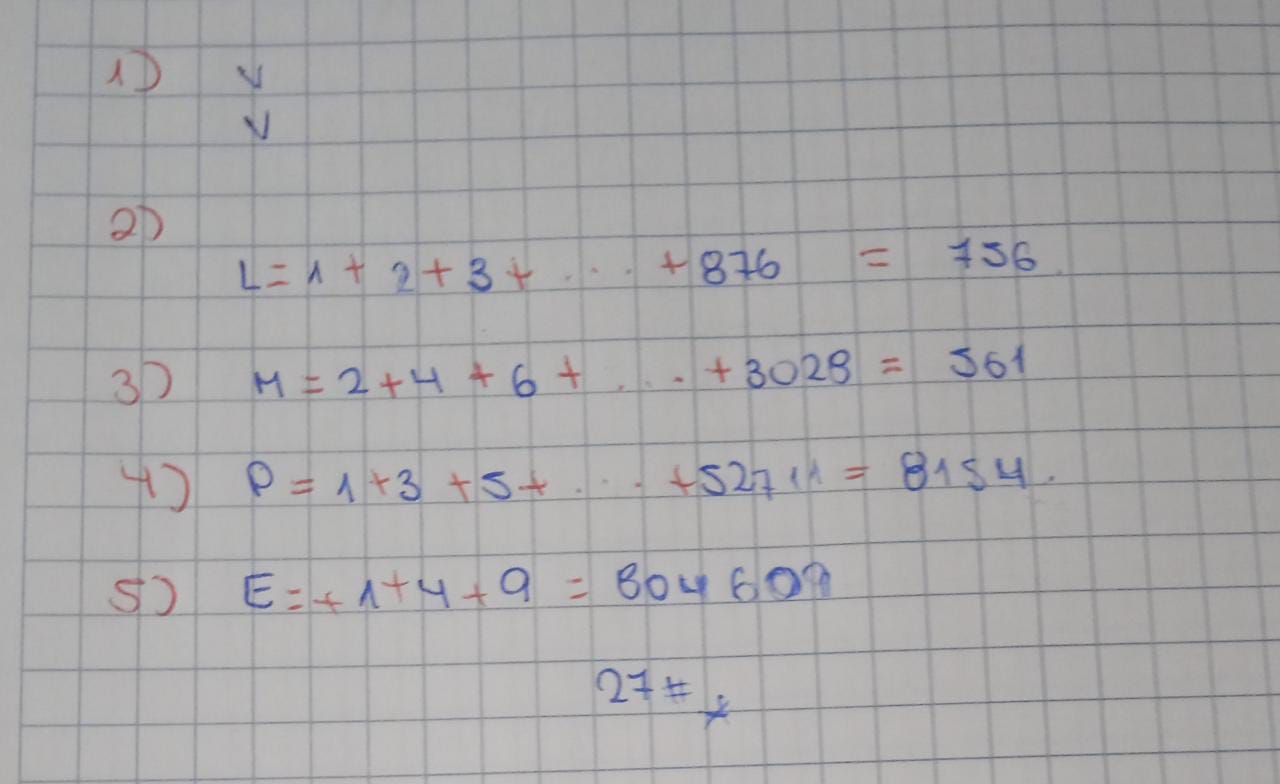 1) v
v
2)
L = 1 + 2 + 3 + . . . . + 876 = 756
3) M = 2 + 4 + 6 + . . . + 3028 = 561
4) P = 1 + 3 + 5 + . . . . + 52711 = 8154.
5) E = + 1 + 4 + 9 = 804 609
27 #